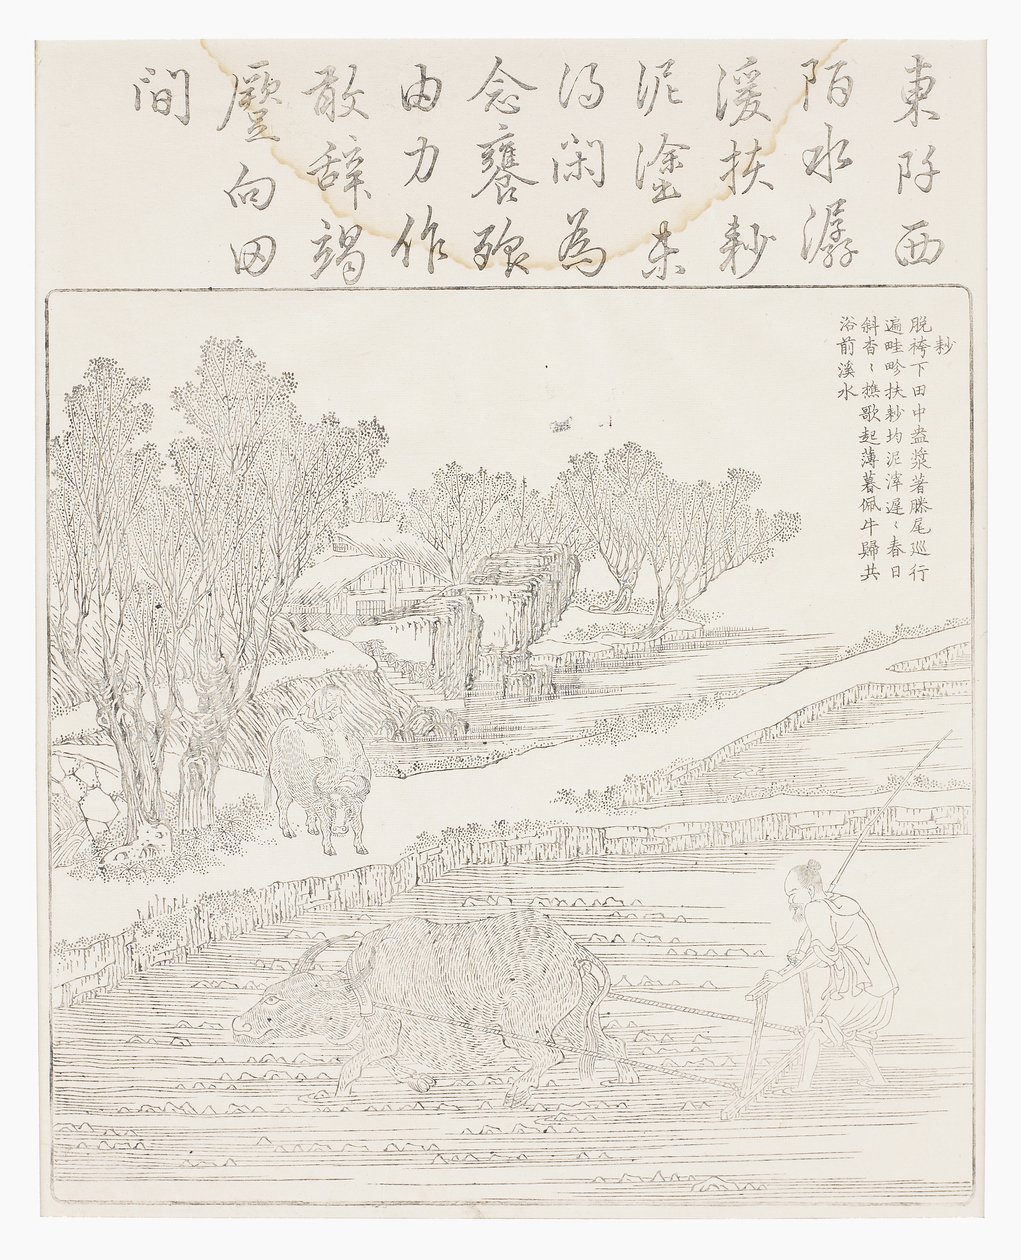 東阡西
陌水潺
湲扶耖
泥塗未
得閑為
念饔飧
由力作
敢辭竭
蹷向田
間
耖
脫袴下田中盎漿著塍尾巡行
遍畦畛扶耖均泥滓遲〻春日
斜杳〻樵歌起薄暮佩牛歸共
浴前溪水